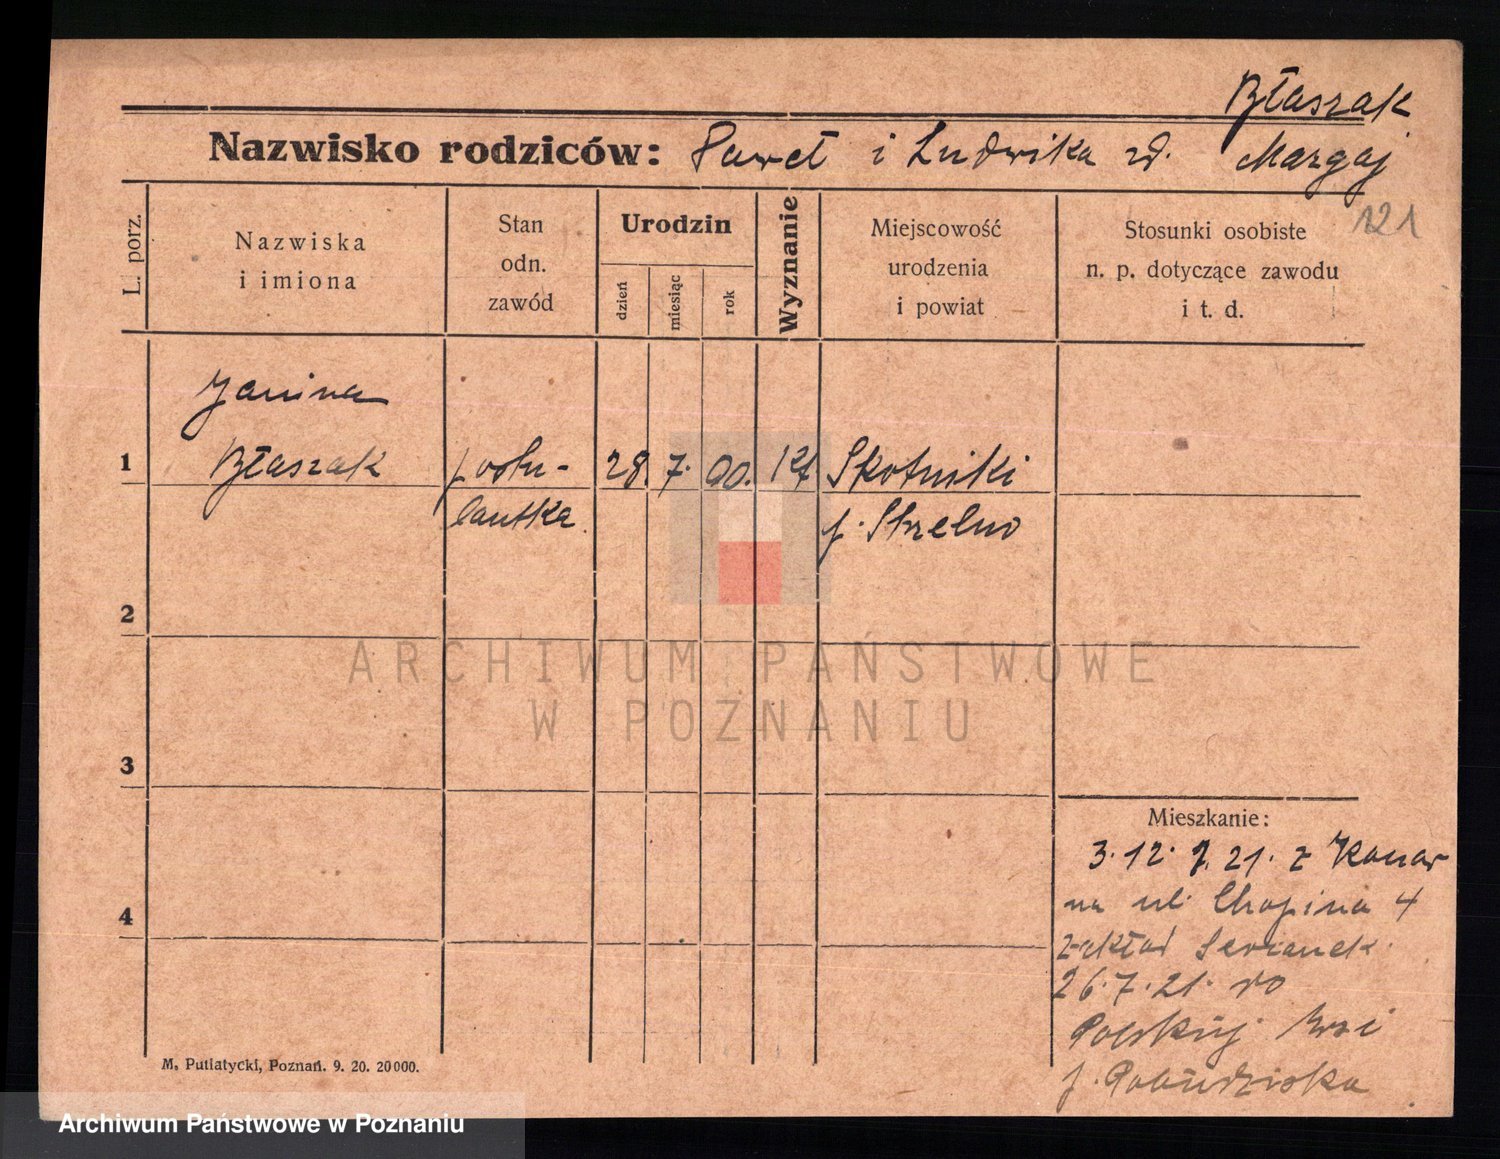 Błaszak
Nazwisko rodziców: Paweł i Ludwika zd. Mazgaj
121
L. porz.
Nazwiska
i imiona
Stan
odn.
zawód
Urodzin
dzień
miesiąc
rok
Wyznanie
Miejscowość
urodzenia
i powiat
Stosunki osobiste
n. p. dotyczące zawodu
i t. d.
Janina
1 Błaszak postu- 28. 7. 00. kat Skotniki
lantka p. Strzelno
2
3
4
Mieszkanie:
3. 12. 21. z Konar
na ul. Chopina 4
zakład Serzanek.
26. 7. 21. do
Polskiej Wsi
p. Pobiedziska
M. Putiatycki, Poznań. 9. 20. 20000.
ARCHIWUM PAŃSTWOWE
W POZNANIU
Archiwum Państwowe w Poznaniu